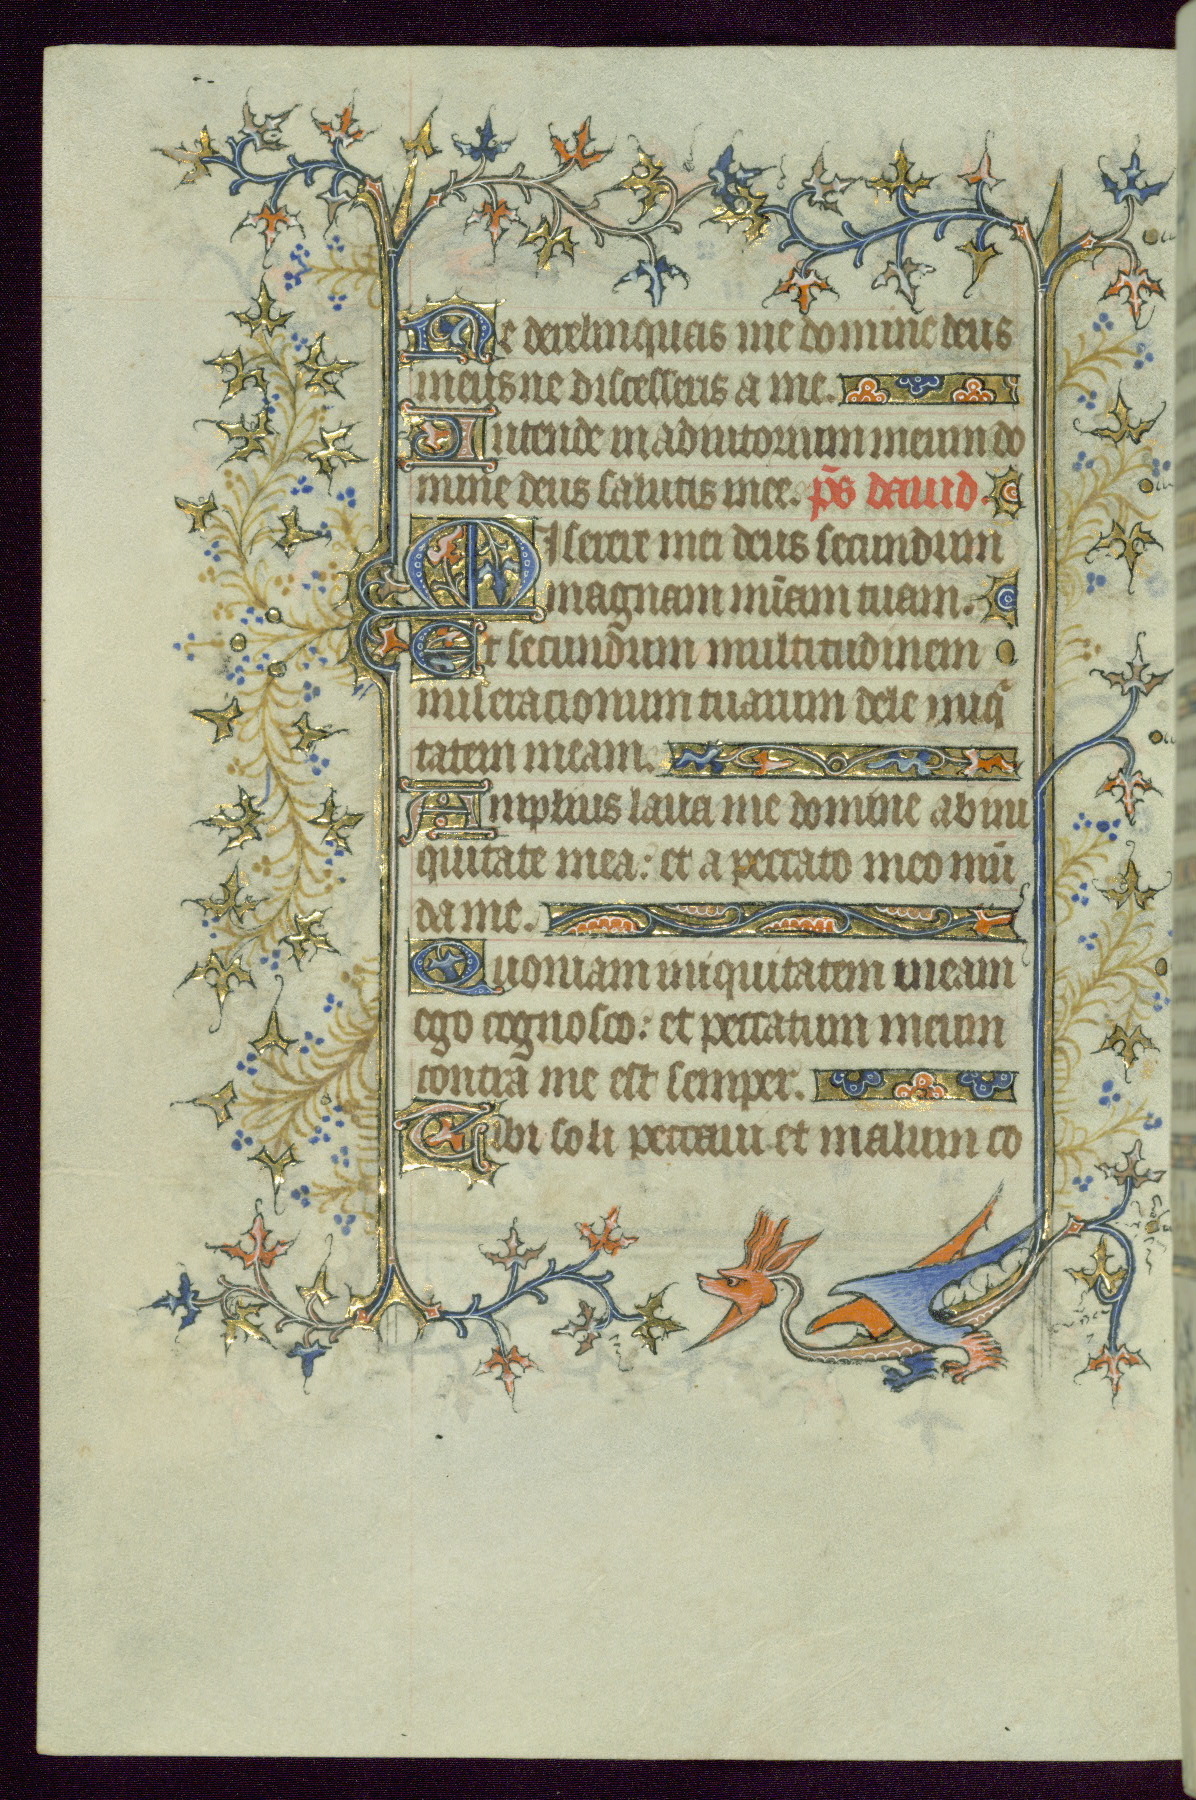 Ne derelinquas me domine deus
meus ne discesseris a me.
Intende in adiutorium meum do
mine deus salutis mee. p̄s dauid.
Miserere mei deus secundum
magnam mīam tuam.
Et secundum multitudinem
miseracionum tuarum dele iniq̄
tatem meam.
Amplius laua me domine ab ini
quitate mea: et a peccato meo mū
da me.
Quoniam iniquitatem meam
ego cognosco: et peccatum meum
contra me est semper.
Tibi soli peccaui et malum co